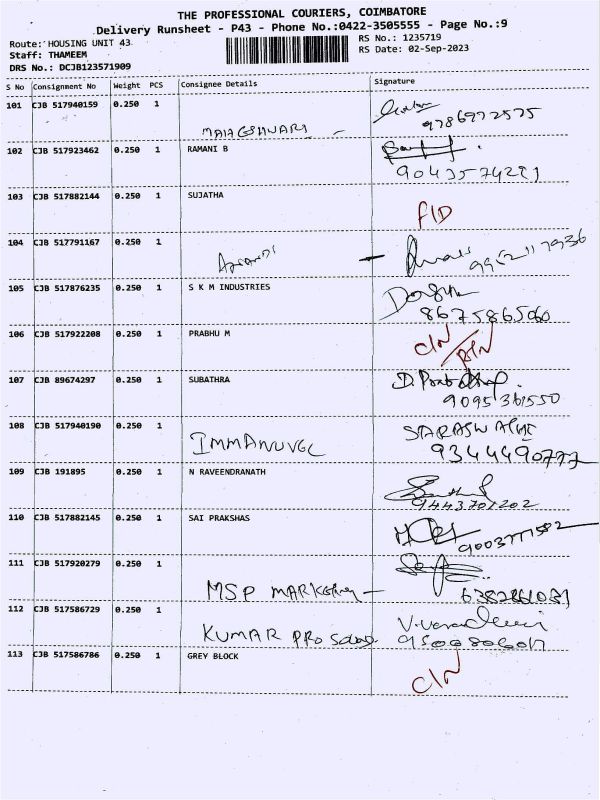 THE PROFESSIONAL COURIERS, COIMBATORE
Delivery Runsheet - P43 - Phone No.:0422-3505555 - Page No.:9
Route: HOUSING UNIT 43
RS No.: 1235719
Staff: THAMEEM
RS Date: 02-Sep-2023
DRS No.: DCJB123571909
S No Consignment No Weight PCS Consignee Details Signature
101 CJB 517940159 0.250 1
MAHAGESHWARI -
9786972575
102 CJB 517923462 0.250 1 RAMANI B
9043574221
103 CJB 517882144 0.250 1 SUJATHA
F/D
104 CJB 517791167 0.250 1
105 CJB 517876235 0.250 1 S K M INDUSTRIES
8675865060
106 CJB 517922208 0.250 1 PRABHU M
C/N
107 CJB 89674297 0.250 1 SUBATHRA
9095361550
108 CJB 517940190 0.250 1
IMMANUVEL
SARASWATHI
9344490777
109 CJB 191895 0.250 1 N RAVEENDRANATH
9443701202
110 CJB 517882145 0.250 1 SAI PRAKSHAS
9003771582
111 CJB 517920279 0.250 1
MSP MARKETING -
6382861031
112 CJB 517586729 0.250 1
KUMAR PRO
9500880601
113 CJB 517586786 0.250 1 GREY BLOCK
C/N